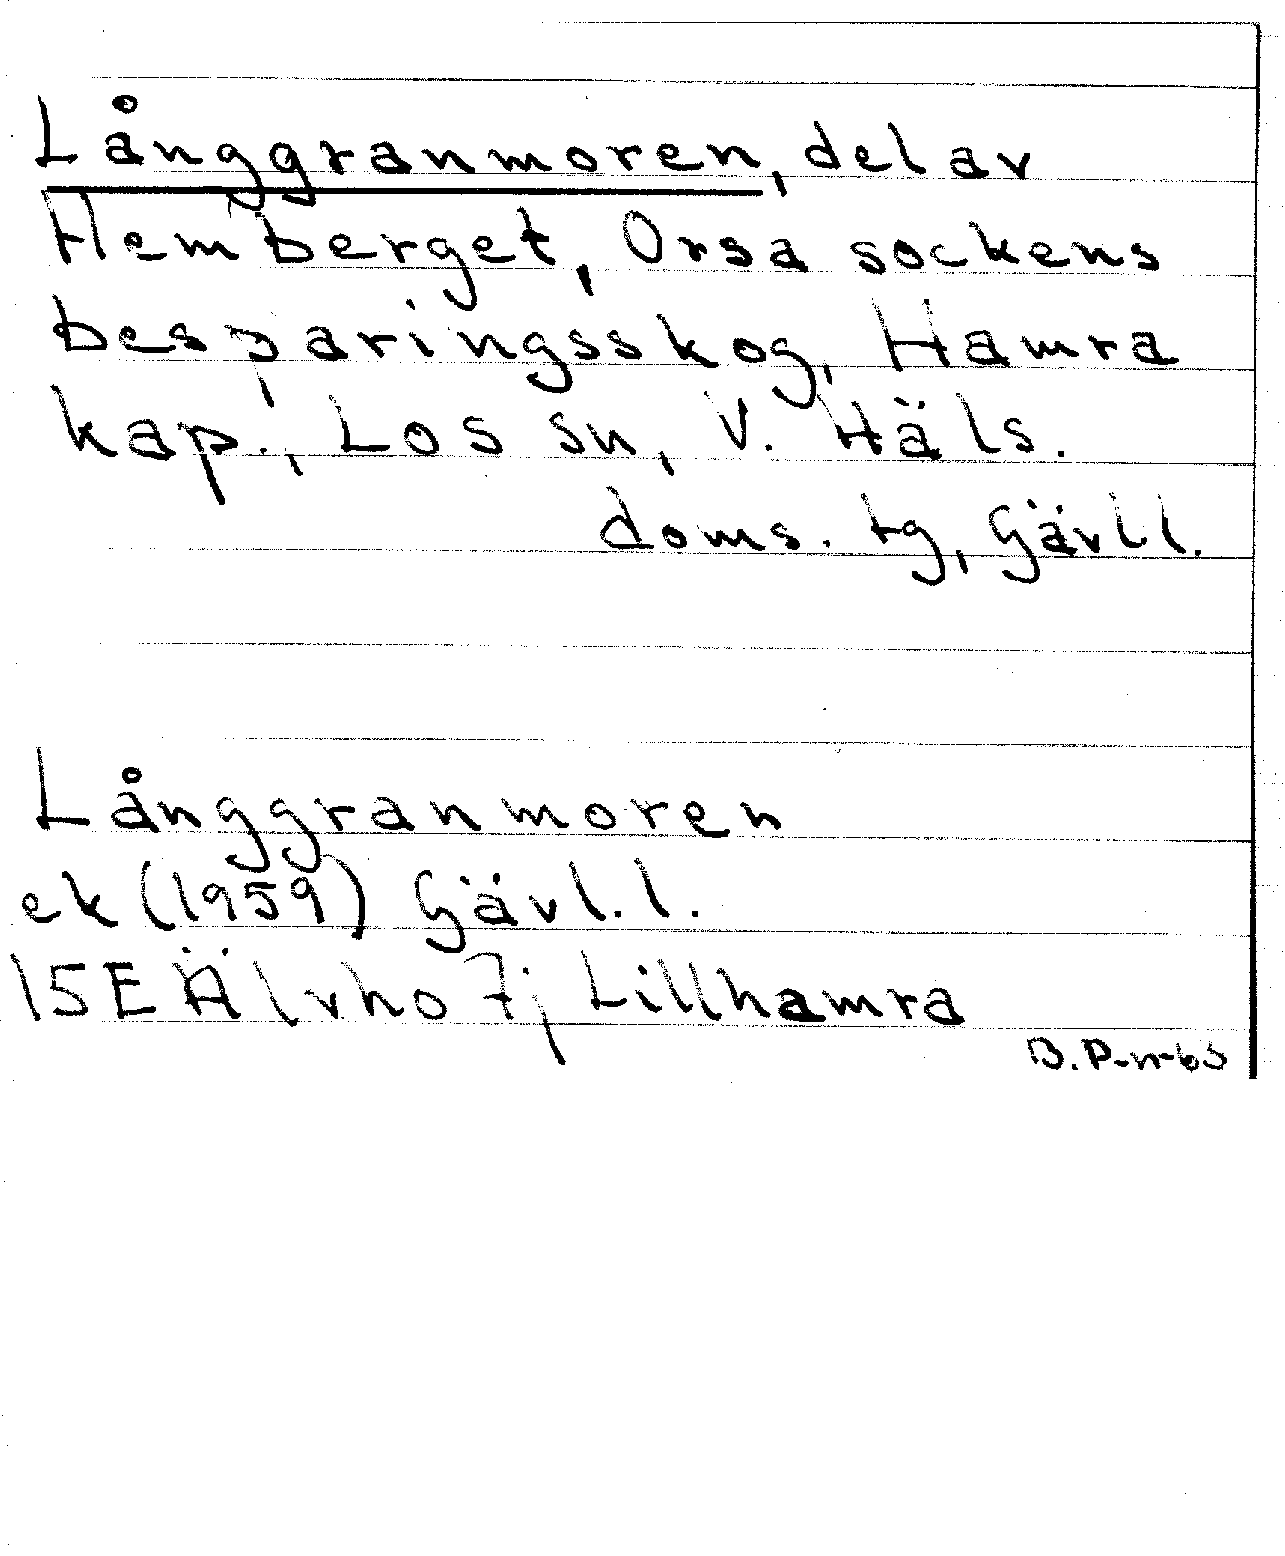 Långgranmoren, del av
Hemberget, Orsa sockens
besparingsskog, Hamra
kap., Los sn, V. Häls.
doms. tg, Gävl l.
Långgranmoren
ek (1959) Gävl. l.
15E Älvho 7j Lillhamra
B. P-n-65